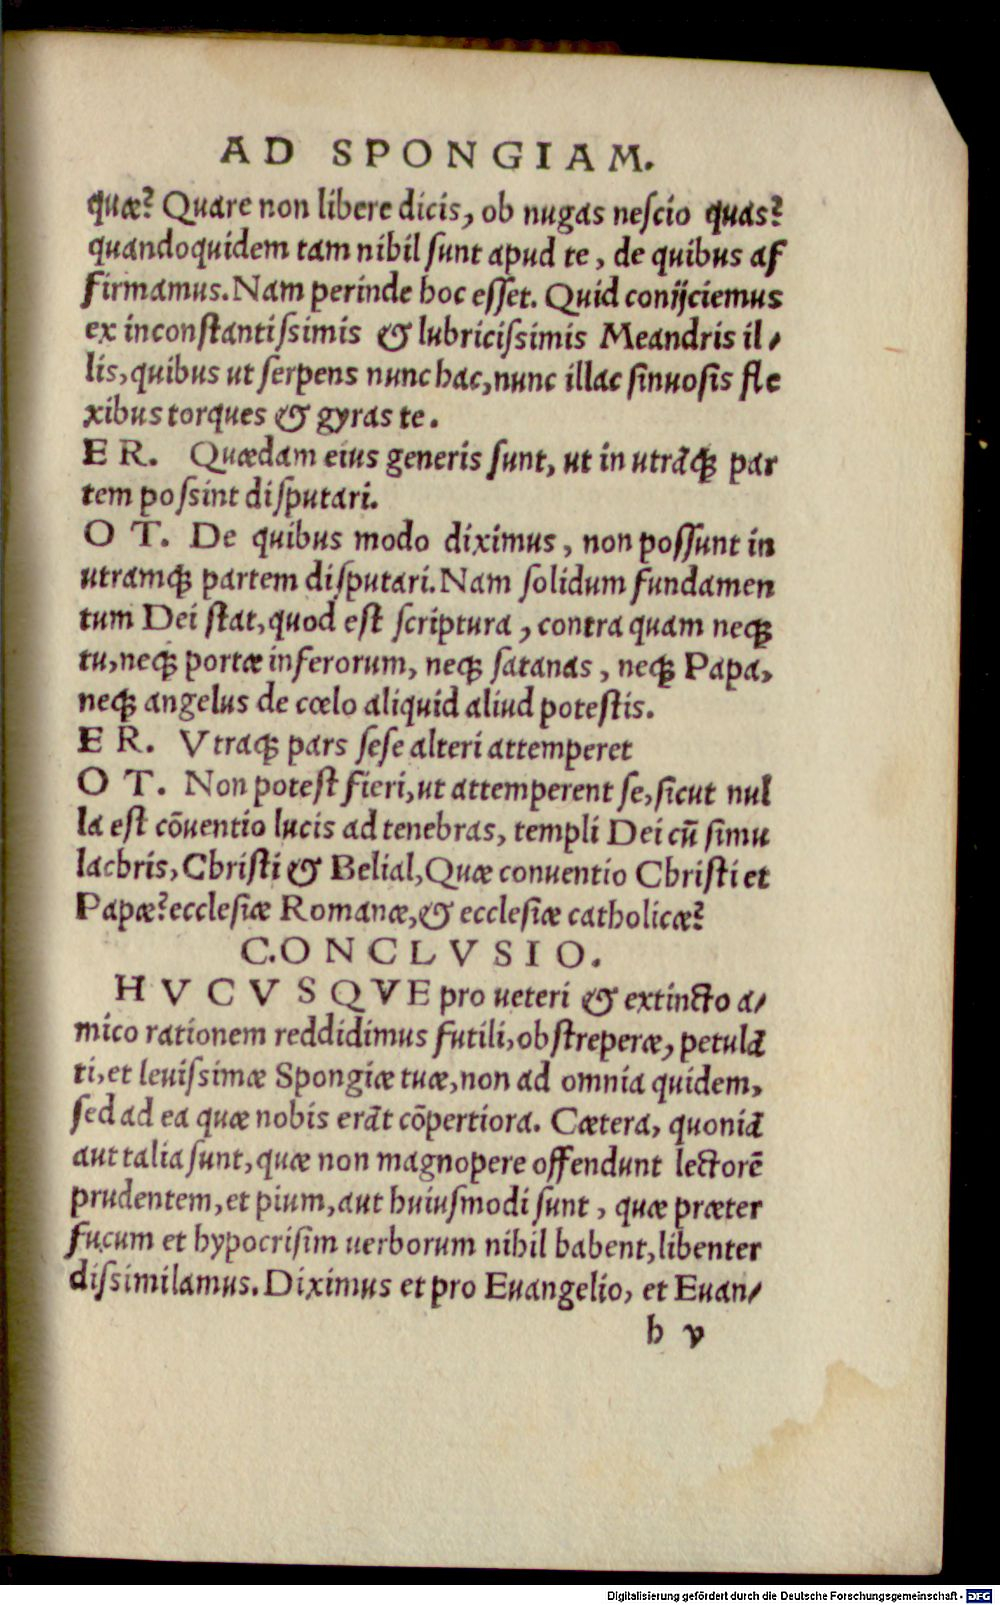 AD SPONGIAM.
quæ? Quare non libere dicis, ob nugas neſcio quas?
quandoquidem tam nibil ſunt apud te, de quibus af
firmamus. Nam perinde hoc eſſet. Quid coniјciemus
ex inconſtantiſsimis & lubriciſsimis Meandris il⸗
lis, quibus ut ſerpens nunc hac, nunc illac ſinuoſis fle
xibus torques & gyras te.
ER. Quædam eius generis ſunt, ut in utrāq; par
tem poſsint diſputari.
OT. De quibus modo diximus, non poſſunt in
utramq; partem diſputari. Nam ſolidum fundamen
tum Dei ſtat, quod eſt ſcriptura, contra quam neq;
tu, neq; portæ inferorum, neq; ſatanas, neq; Papa,
neq; angelus de cœlo aliquid aliud poteſtis.
ER. Vtraq; pars ſeſe alteri attemperet
OT. Non poteſt fieri, ut attemperent ſe, ſicut nul
la eſt cōuentio lucis ad tenebras, templi Dei cū ſimu
lachris, Chriſti & Belial, Quæ conuentio Chriſti et
Papæ? eccleſiæ Romanæ, & eccleſiæ catholicæ?
C.ONCLVSIO.
HVCVSQVE pro ueteri & extincto a⸗
mico rationem reddidimus futili, obſtreperæ, petulā
ti, et leuiſsimæ Spongiæ tuæ, non ad omnia quidem,
ſed ad ea quæ nobis erāt cōpertiora. Cætera, quoniā
aut talia ſunt, quæ non magnopere offendunt lectorē
prudentem, et pium, aut huiuſmodi ſunt, quæ præter
fucum et hypocriſim uerborum nihil habent, libenter
diſsimilamus. Diximus et pro Euangelio, et Euan⸗
b v
Digitalisierung gefördert durch die Deutsche Forschungsgemeinschaft - DFG